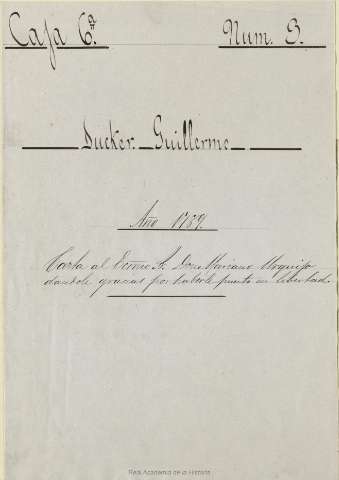 Caja 6ª. Num. 3.
Ducker Guillermo
Año 1789.
Carta al Excmo. Sr. Don Mariano Urquijo
dandole gracias por haberle puesto en libertad.
Real Academia de la Historia